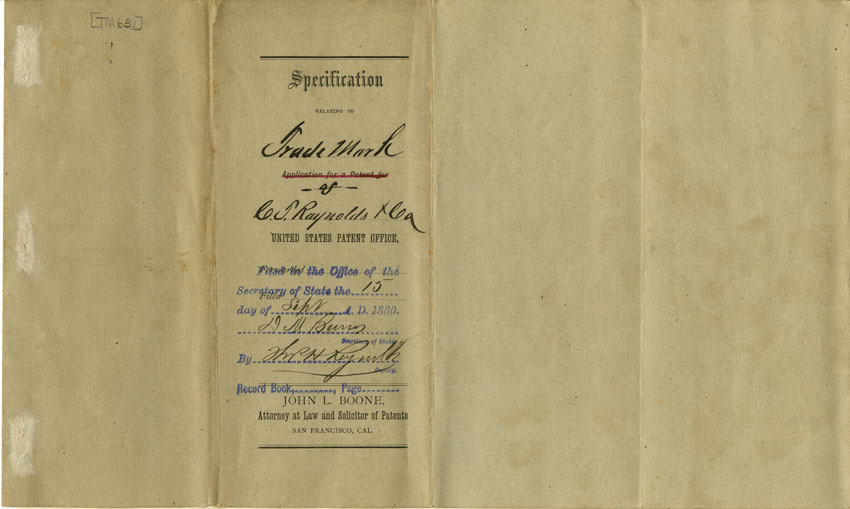 [TM 63]
Specification
RELATING TO
Trade Mark
Application for a Patent for
— of —
C. T. Raynolds & Co
UNITED STATES PATENT OFFICE,
Forwarded
Filed in the Office of the
Secretary of State the 15
Filed
day of Sept A. D. 1880.
D M Burns
Secretary of State
By Thos H Reynolds
Deputy.
Record Book, Page
JOHN L. BOONE,
Attorney at Law and Solicitor of Patents
SAN FRANCISCO, CAL.